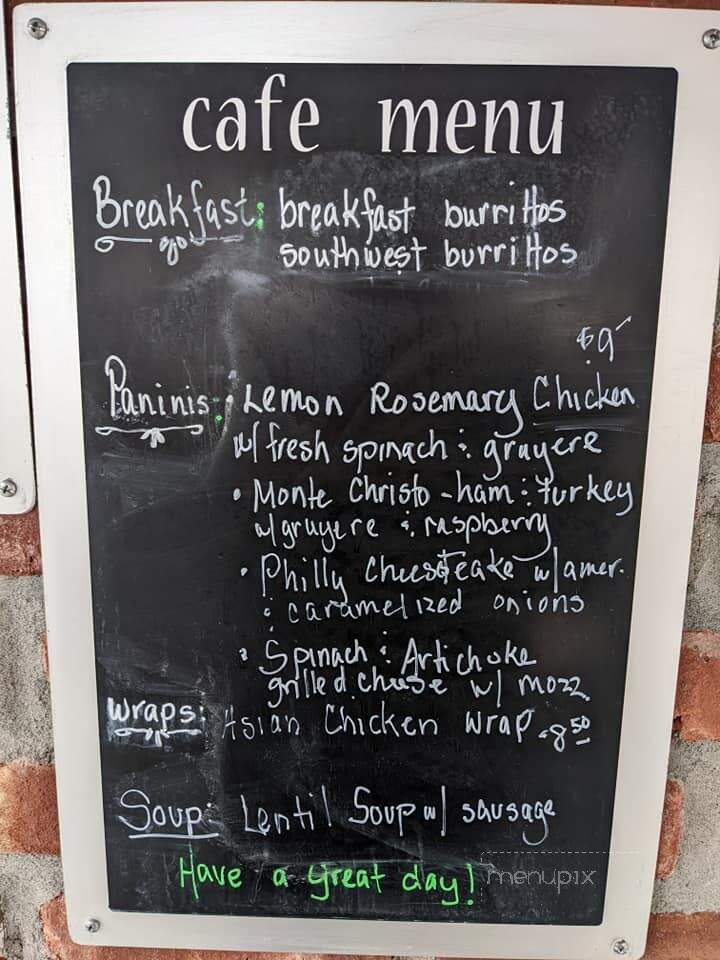 cafe menu
Breakfast: breakfast burrittos
southwest burrittos
$9
Paninis: • Lemon Rosemary Chicken
w/ fresh spinach : gruyere
• Monte Christo - ham : turkey
w/gruyere : raspberry
• Philly Cheesteake w/ amer.
: caramelized onions
• Spinach : Artichoke
grilled cheese w/ mozz
Wraps: Asian Chicken Wrap - 8.50
Soup: Lentil Soup w/ sausage
Have a great day!
menupix